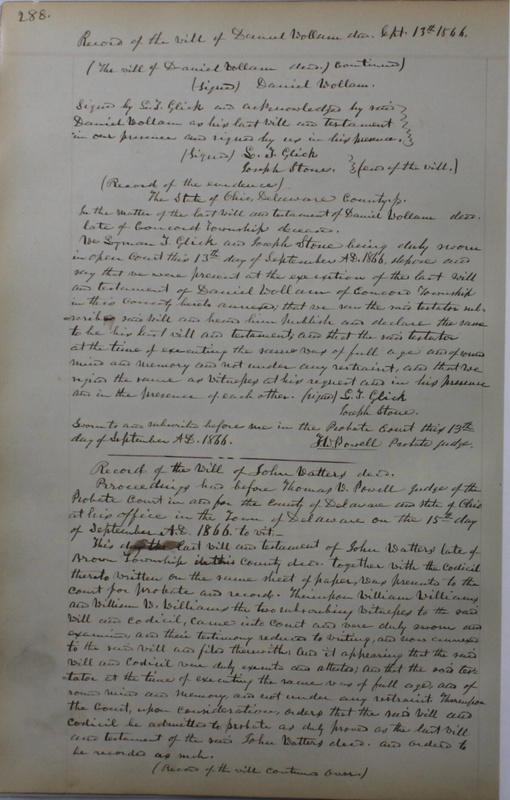 288.
Record of the will of Daniel Wollam decd. Sept. 13th 1866.
(The will of Daniel Wollam decd.) Continued)
(Signed) Daniel Wollam.
Signed by L. T. Glick and acknowledged by said
Daniel Wollam as his last will and testament
in our presence and signed by us in his presence.
(Signed) L. T. Glick
Joseph Stone. (end of the will.)
(Record of the evidence)
The State of Ohio, Delaware County, ss.
In the matter of the last will and testament of Daniel Wollam decd.
late of Concord Township deceased.
We Lyman T. Glick and Joseph Stone being duly sworn
in open Court this 13th day of September A.D. 1866, depose and
say that we were present at the execution of the last will
and testament of Daniel Wollam of Concord Township
in this County hereto annexed; that we saw the said testator sub-
scribe said will and heard him publish and declare the same
to be his last will and testament; and that the said testator
at the time of executing the same was of full age and of sound
mind and memory and not under any restraint, and that we
signed the same as witnesses at his request and in his presence
and in the presence of each other. (signed) L. T. Glick
Joseph Stone.
Sworn to and subscribed before me in the Probate Court this 13th
day of September A.D. 1866. T. W. Powell Probate Judge.
Record of the Will of John Watters decd.
Proceedings had before Thomas W. Powell Judge of the
Probate Court in and for the County of Delaware and State of Ohio
at his office in the Town of Delaware on the 15th day
of September A.D. 1866. to wit:-
This day the last will and testament of John Watters late of
Brown Township in this County decd. together with the Codicil
thereto written on the same sheet of paper, was presented to the
court for probate and record. Thereupon William Williams
and William W. Williams the two subscribing witnesses to the said
Will and Codicil, came into Court and were duly sworn and
examined, and their testimony reduced to writing, and now annexed
to the said Will and filed therewith; And it appearing that the said
Will and Codicil were duly executed and attested; and that the said tes-
tator at the time of executing the same was of full age, and of
sound mind and memory, and not under any restraint. Thereupon
the Court, upon consideration, orders that the said Will and
codicil be admitted to probate as duly proved as the last Will
and testament of the said John Watters decd. and ordered to
be recorded as such.
(Record of the will continued over.)